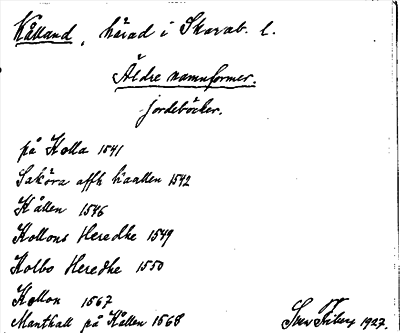 Kålland, härad i Skarab. l.
Äldre namnformer.
jordeböcker.
på Kolla 1541
Saköra affk Kaallen 1542
Kållen 1546
Kollons Heredhe 1549
Kolbo Heredhe 1550
Kollon 1567
Manthall på Kållen 1568
1927.